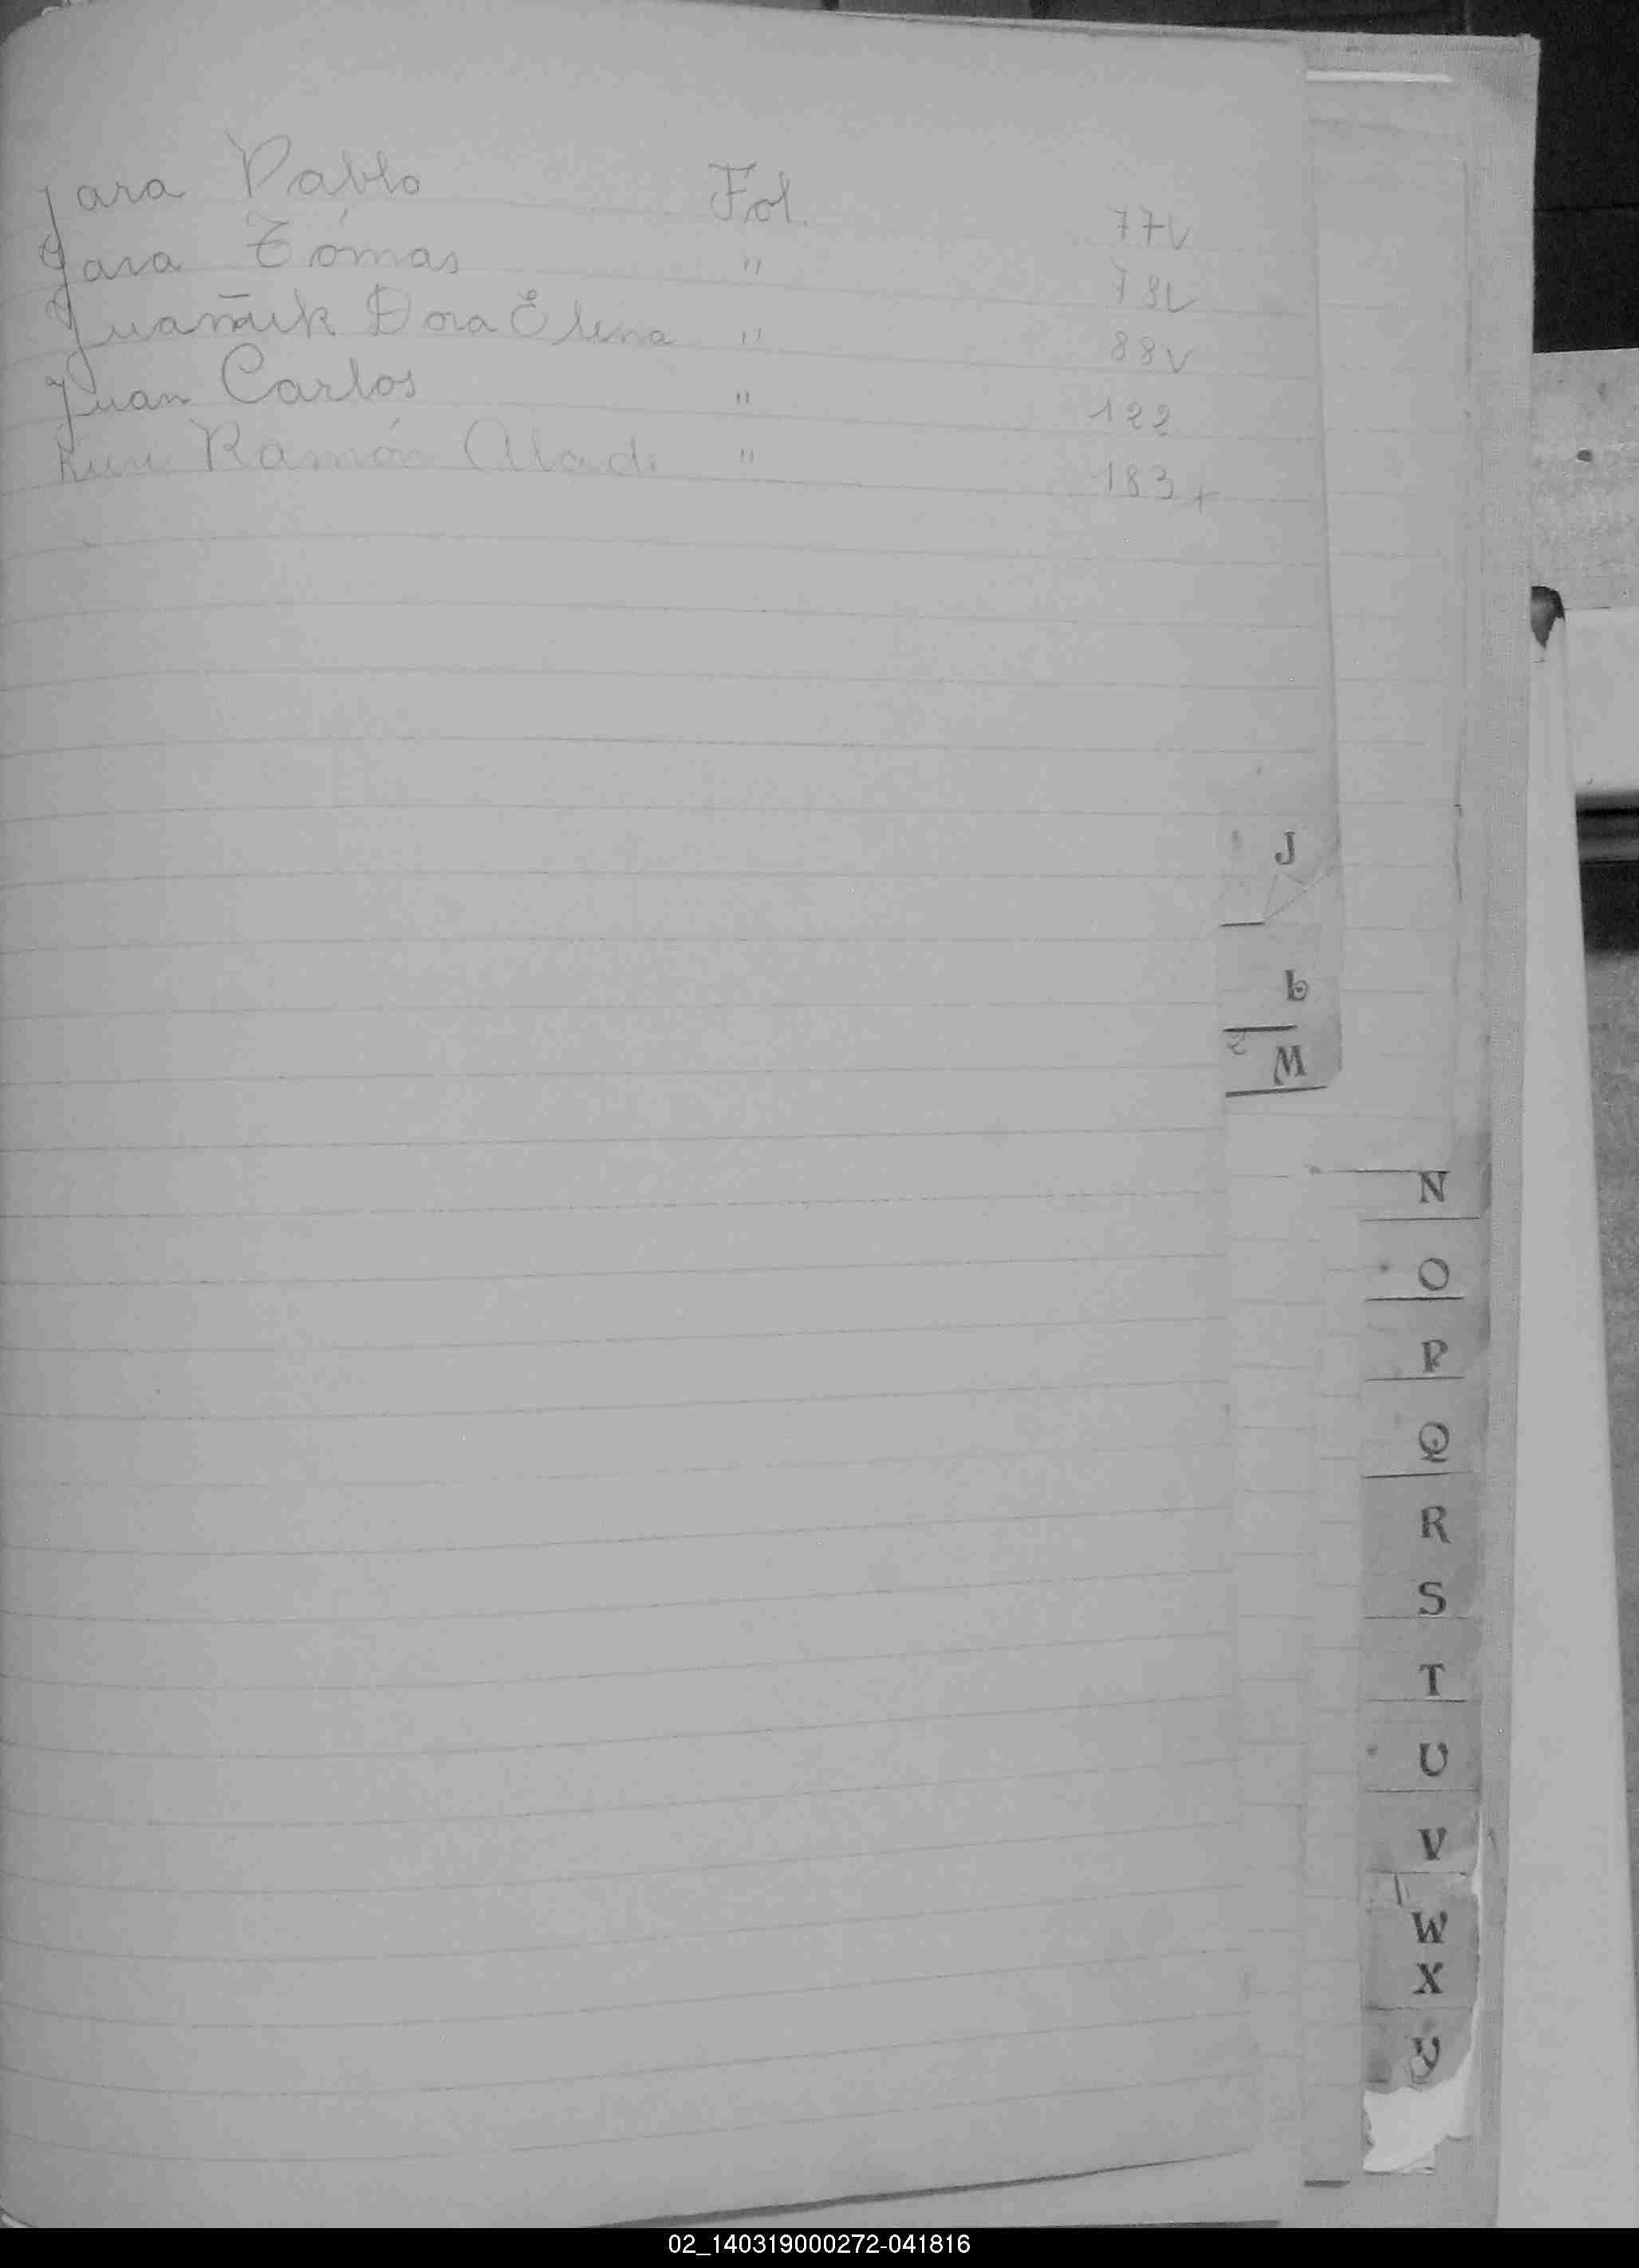 Jara Pablo Fol. 77v
Jara Tómas " 78v
Juañuk Dora Elena " 88v
Juan Carlos " 122
Ramón " 183+
J
L
M
N
O
P
Q
R
S
T
U
V
W
X
Y
02_140319000272-041816